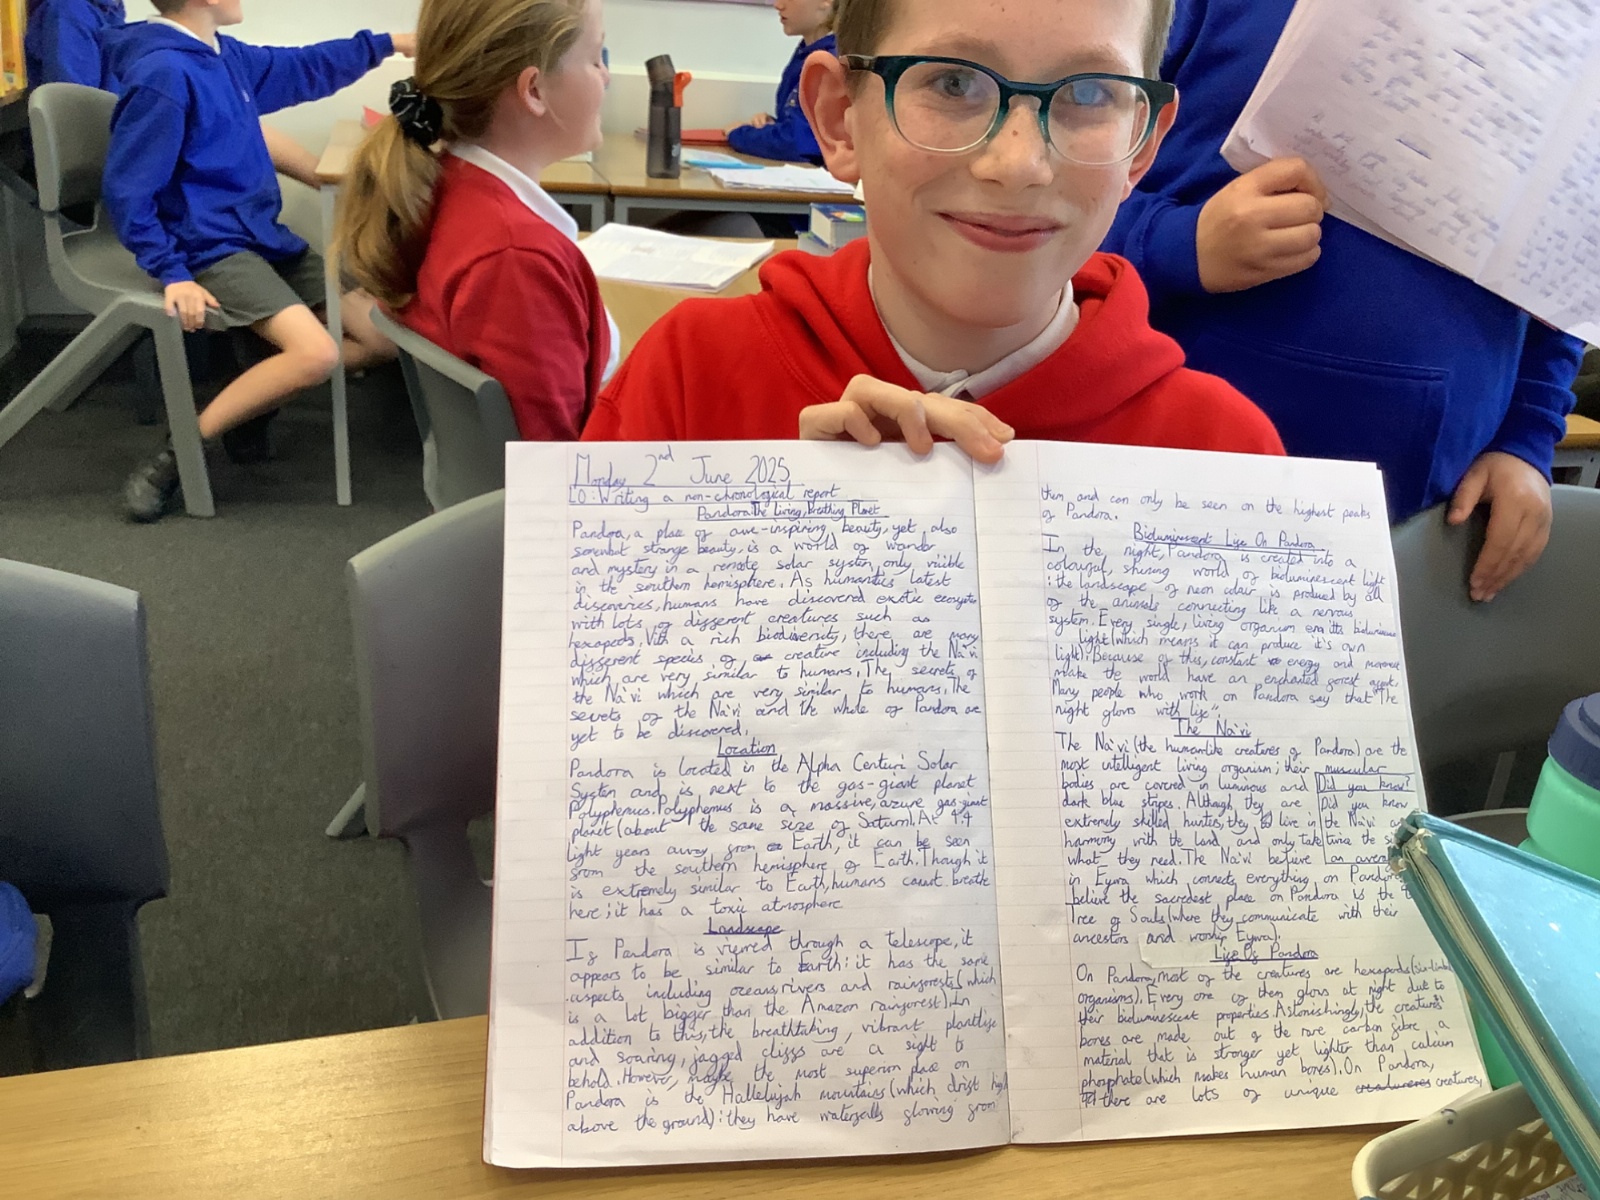 Monday 2nd June 2025
LO: Writing a non-chronological report
Pandora: The Living, Breathing Planet
Pandora, a place of awe-inspiring beauty, yet also
somewhat strange beauty, is a world of wonder
and mystery in a remote solar system, only visible
in the southern hemisphere. As humanties latest
discoveries, humans have discovered exotic ecosystem
with lots of different creatures such as
hexapods. With a rich biodiversity, there are many
different species of creature including the Na'vi
which are very similar to humans. The secrets of
the Na'vi which are very similar to humans. The
secrets of the Na'vi and the whole of Pandora are
yet to be discovered.
Location
Pandora is located in the Alpha Centuri Solar
System and is next to the gas-giant planet
Polyphemus. Polyphemus is a massive, azure gas-giant
planet (about the same size of Saturn). At 4.4
light years away from Earth, it can be seen
from the southern hemisphere of Earth. Though it
is extremely similar to Earth, humans cannot breathe
here; it has a toxic atmosphere
Landscape
If Pandora is viewed through a telescope, it
appears to be similar to Earth: it has the same
aspects including oceans, rivers and rainforests (which
is a lot bigger than the Amazon rainforest). In
addition to this, the breathtaking, vibrant plantlife
and soaring, jagged cliffs are a sight to
behold. However, maybe the most superior place on
Pandora is the Hallelujah mountains (which drift high
above the ground): they have waterfalls flowing from
them and can only be seen on the highest peaks
of Pandora.
Bioluminesent Life On Pandora
In the night, Pandora is created into a
colourful, shining world of bioluminescent light
: the landscape of neon colour is produced by all
of the animals connecting like a nervous
system. Every single, living organism emitts
light (which means it can produce it's own
light). Because of this, constant energy and
make the world have an enchanted forest
Many people who work on Pandora say that "The
night glows with life".
The Na'vi
The Na'vi (the humanlike creatures of Pandora) are the
most intelligent living organism; their muscular
bodies are covered in luminous and
dark blue stripes. Although, they are
extremely skilled hunters, they live in
harmony with the land and only take
what they need. The Na'vi believe
in Eywa which connects everything on Pandora
believe the sacredest place on Pandora is the
Tree of Souls (where they communicate with their
ancestors and worship Eywa).
Did you know?
Did you know
the Na'vi
twice the
an
Life Of Pandora
On Pandora, most of the creatures are hexapods (six-limbed
organisms). Every one of them glows at night due to
their bioluminescent properties. Astonishingly, the creatures'
bones are made out of the rare carbon fibre, a
material that is stronger yet lighter than calcium
phosphate (which makes human bones). On Pandora,
there are lots of unique creatures,